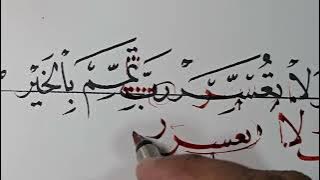 وَلَا تُعَسِّرْ رَبِّ تَمِّمْ بِالْخَيْرِ
لا تعسر ر